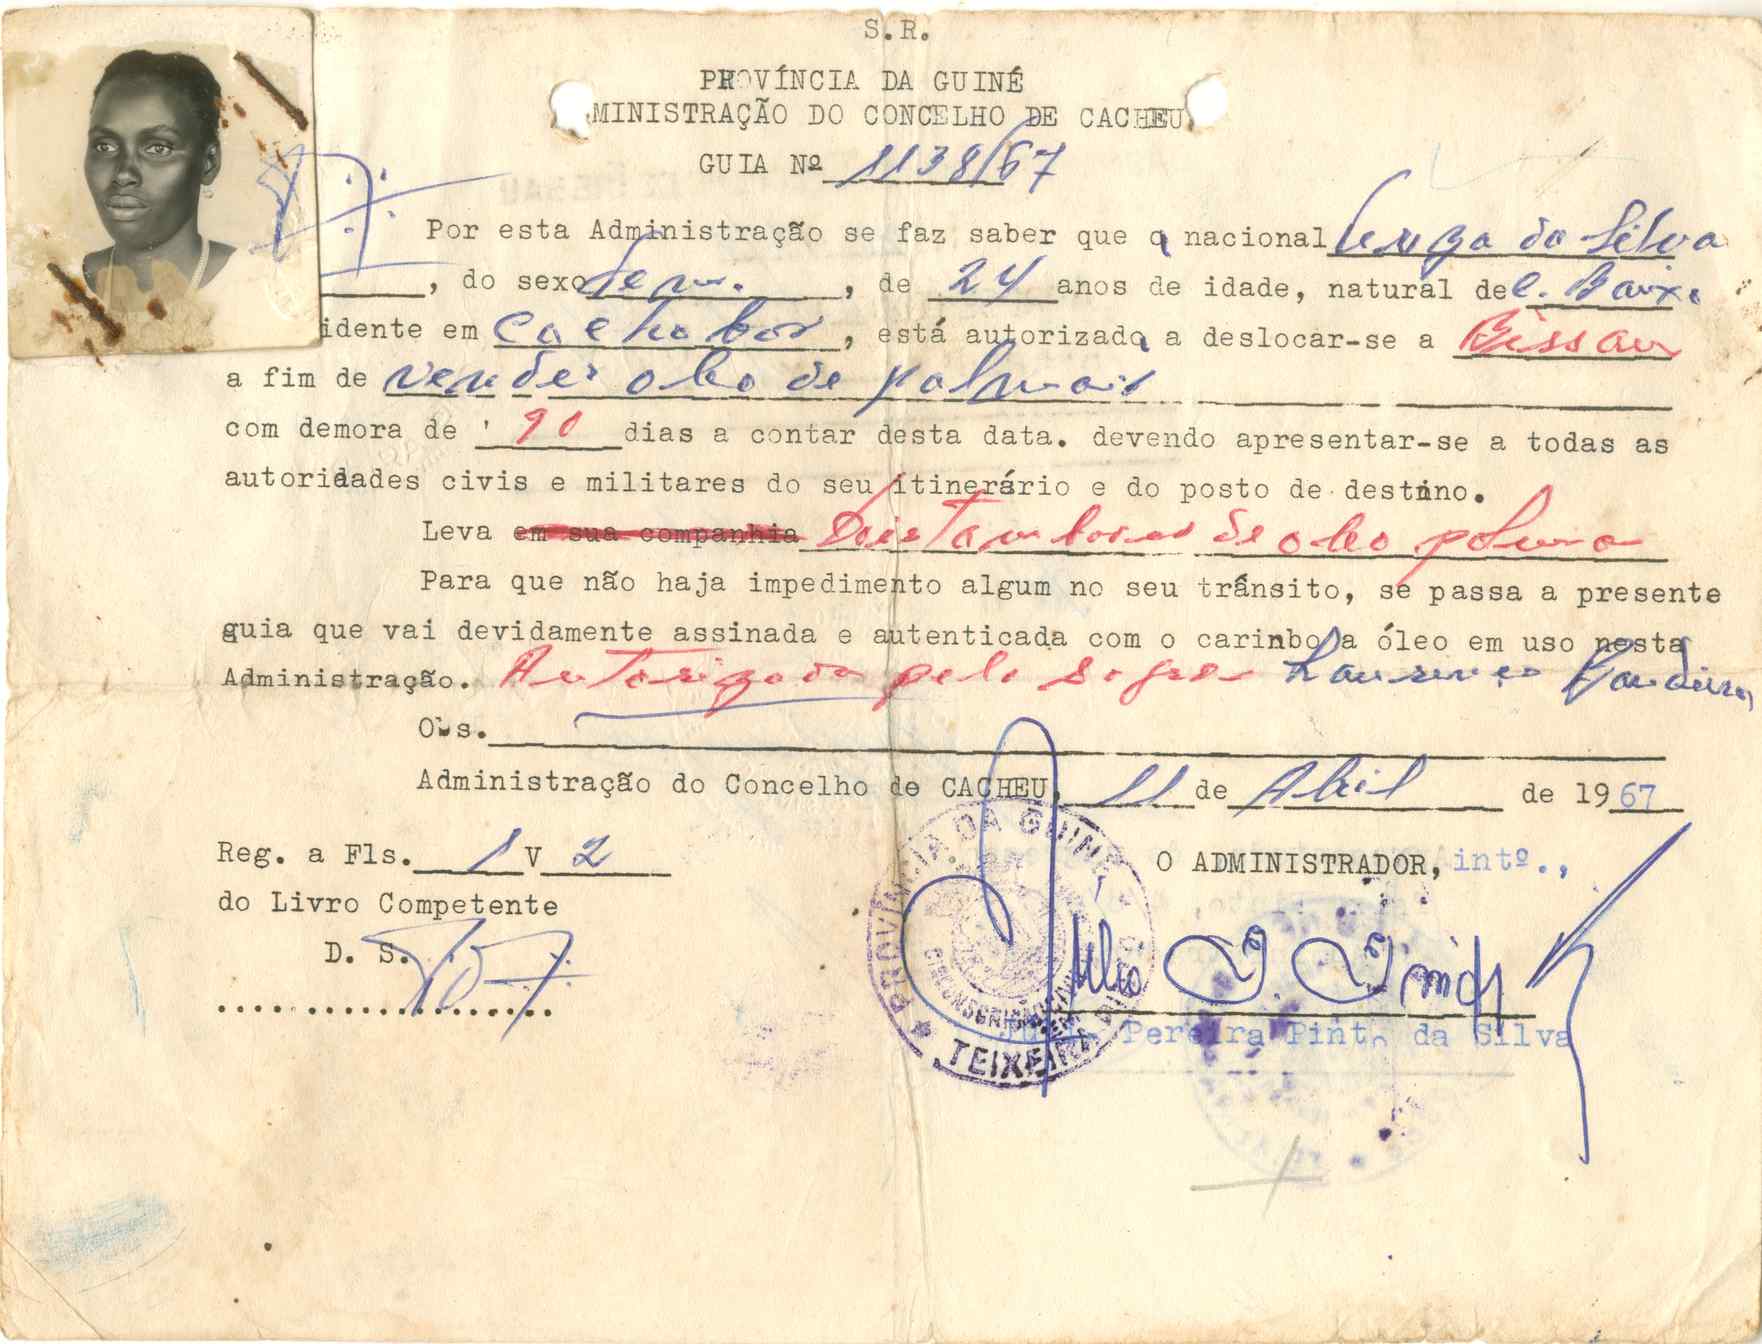 S.R.
PROVÍNCIA DA GUINÉ
MINISTRAÇÃO DO CONCELHO DE CACHEU
GUIA Nº 1138/67
Por esta Administração se faz saber que a nacional da Silva
, do sexo fem. , de 24 anos de idade, natural de C. Baixo
idente em , está autorizada a deslocar-se a Bissau
a fim de vender oleo de palmais
com demora de 90 dias a contar desta data. devendo apresentar-se a todas as
autoridades civis e militares do seu itinerário e do posto de destino.
Leva em sua companhia Dois Tambores de oleo palma
Para que não haja impedimento algum no seu trânsito, se passa a presente
guia que vai devidamente assinada e autenticada com o carinbo a óleo em uso nesta
Administração. Autorizada pelo
Obs.
Administração do Concelho de CACHEU, 11 de Abril de 1967
Reg. a Fls. 1 V 2
do Livro Competente
O ADMINISTRADOR, intº.,
D. S.
Pereira Pinto da Silva
PROVÍNCIA DA GUINÉ
TEIXEIRA